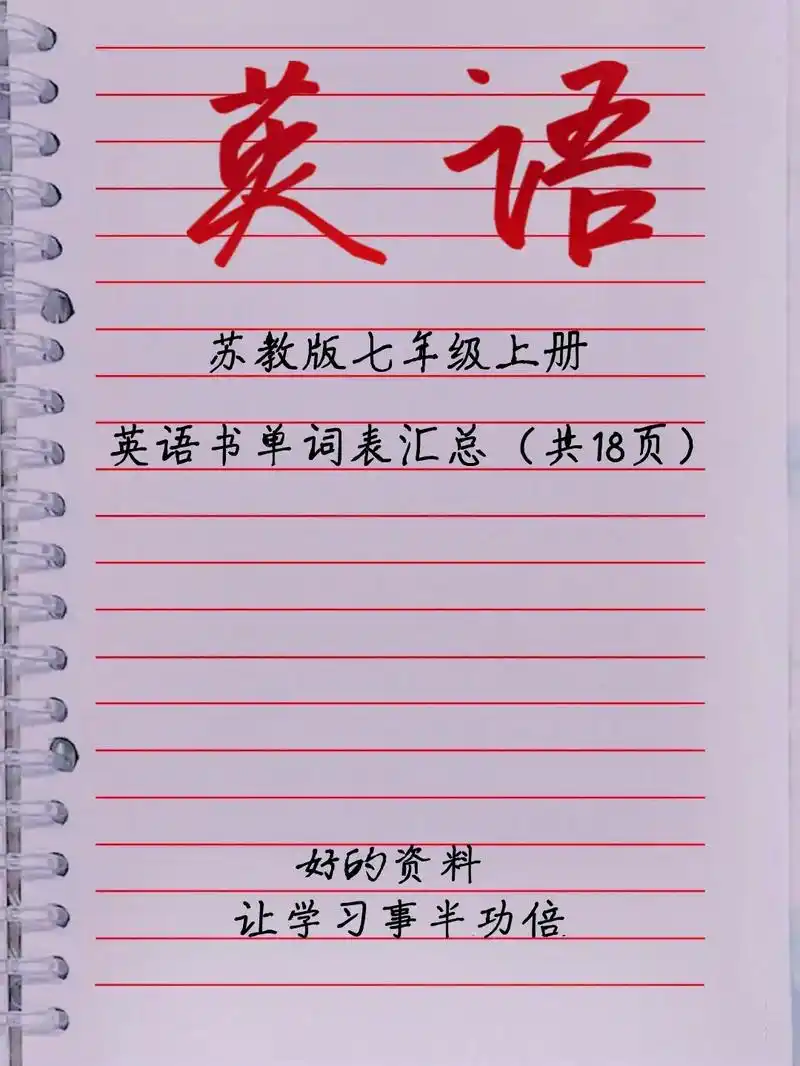 英语
苏教版七年级上册
英语书单词表汇总（共18页）
好的资料
让学习事半功倍